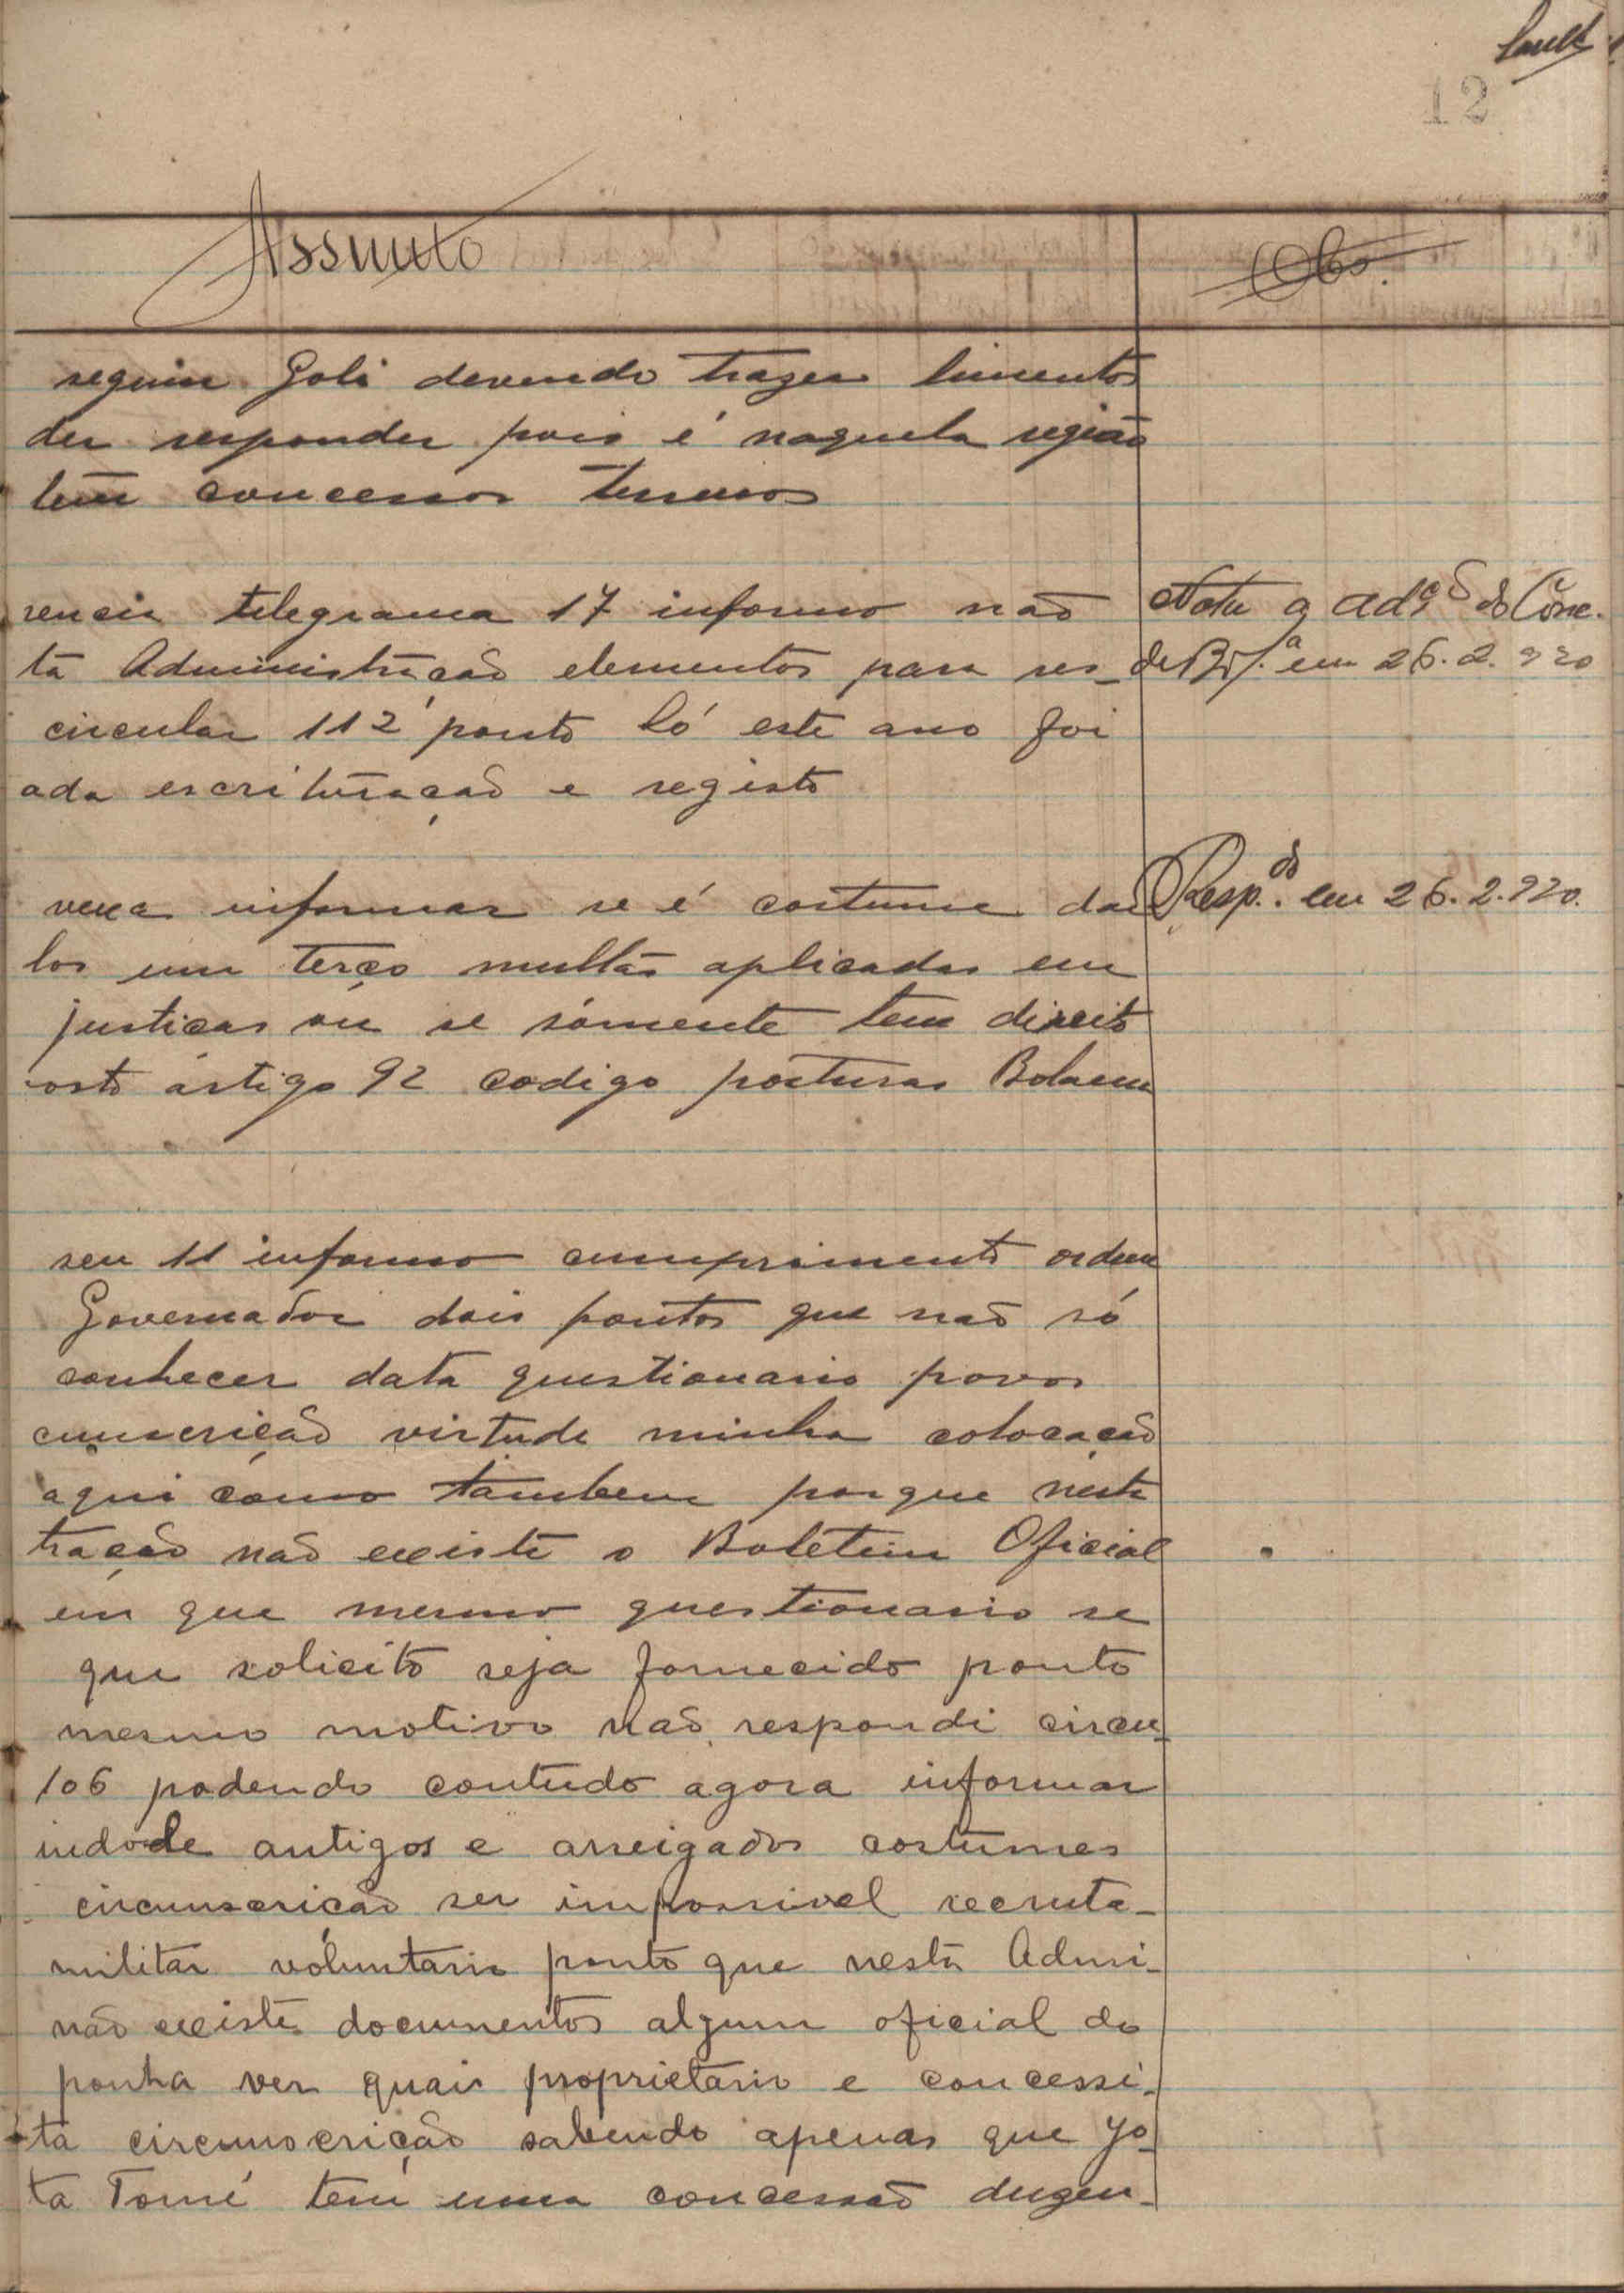 12
Assunto
Obs.
seguir Goli devendo trazer
der responder pois é naquela região
tem terrenos
rencia telegrama 17 informo não
Nota a adm.ão do Conc.
ta Administração elementos para res-
de em 26.2.920
circular 112 ponto Só este ano foi
ada escrituração e registo
nexa informar se é costume dar
Resp.do em 26.2.920.
los um terço multas aplicadas em
justiças ou se sómente tem direito
osto artigo 92 codigo posturas Bolama
seu 11 informo cumprimento ordem
Governador dois pontos que não só
conhecer data questionario povos
cunscrição virtude minha colocação
aqui como tambem porque nesta
tração não existe o Boletim Oficial
em que mesmo questionario se
que solicito seja fornecido ponto
mesmo motivo não respondi circu-
106 podendo contudo agora informar
indole antigos e arreigados costumes
circunscrição ser impossivel recruta-
militar voluntario ponto que nesta Admi-
não existe documentos algum oficial do
ponha ver quais proprietario e concessi-
ta circunscrição sabendo apenas que Jo-
ta Tomé tem uma concessão duzen-